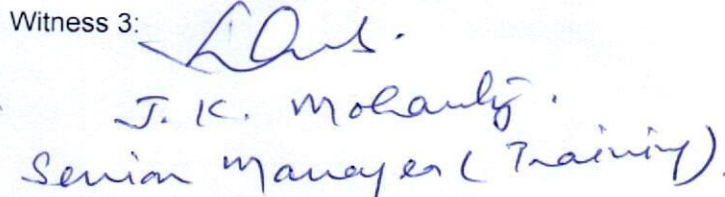 Witness 3:
J. K. Mohanty.
Senior Manager (Training).